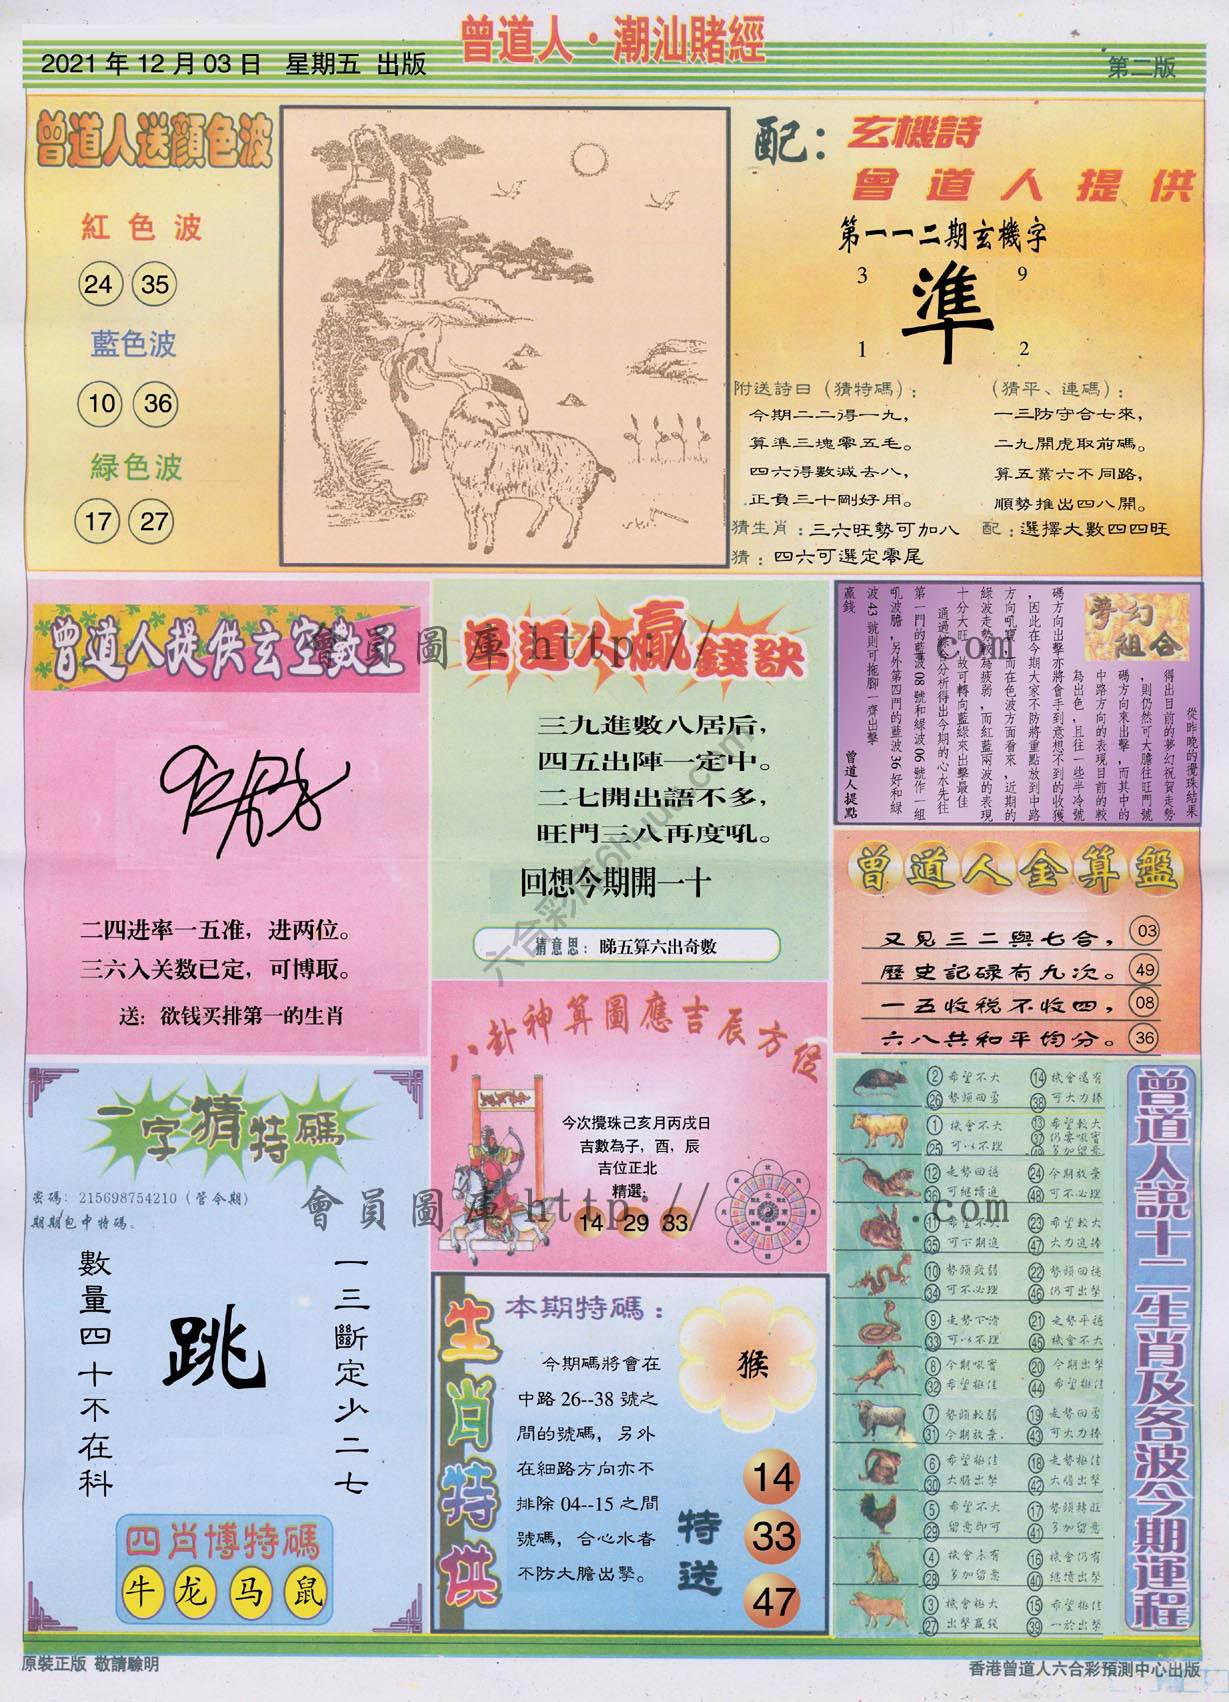 曾道人·潮汕賭經
2021年12月03日 星期五 出版
第二版
曾道人送顏色波
紅色波
24 35
藍色波
10 36
緑色波
17 27
配：玄機詩
曾道人提供
第一一二期玄機字
3 9
準
1 2
附送詩曰（猜特碼）：
今期二二得一九，
算準三塊零五毛。
四六得數減去八，
正負三十剛好用。
（猜平、連碼）：
一三防守合七來，
二九開虎取前碼。
算五業六不同路，
順勢推出四八開。
猜生肖：三六旺勢可加八
配：選擇大數四四旺
猜：四六可選定零尾
曾道人提供玄空數王
二四进率一五准，进两位。
三六入关数已定，可博取。
送：欲钱买排第一的生肖
曾道人贏錢訣
三九進數八居后，
四五出陣一定中。
二七開出語不多，
旺門三八再度吼。
回想今期開一十
猜意思：睇五算六出奇數
夢幻組合
從昨晚的攪珠結果
得出目前的夢幻祝賀走勢
，則仍然可大膽往旺門號
碼方向來出擊，而其中的
中路方向的表現目前的較
為出色，且往一些半冷號
碼方向出擊亦將會手到意想不到的收獲
，因此在今期大家不防將重點放到中路
方向吼寶，而在色波方面看來，近期的
綠波走勢較為疲弱，而紅藍兩波的表現
十分大旺，故可轉向藍綠來出擊最佳
通過綜合分析得出今期的心水先往
第一門的藍波08號和綠波06號作一組
吼波膽，另外第四門的藍波36好和綠
波43號則可拖腳一齊出擊
贏錢
曾道人提點
曾道人金算盤
又見三二與七合， 03
歷史記碌有九次。 49
一五收税不收四， 08
六八共和平均分。 36
八卦神算圖應吉辰方位
今次攪珠己亥月丙戌日
吉數為子，酉，辰
吉位正北
精選：
14 29 33
一字猜特碼
密碼：215698754210（管今期）
期期包中特碼。
一三斷定少二七
跳
數量四十不在科
四肖博特碼
牛 龙 马 鼠
生肖特供
本期特碼：
猴
今期碼將會在
中路26--38號之
間的號碼，另外
在細路方向亦不
排除04--15之間
號碼，合心水者
不防大膽出擊。
特送
14
33
47
曾道人説十二生肖及各波今期運程
2 希望不大 14 機會還有
26 勢頭回勇 38 可大力捧
1 機會不大 13 希望較大
25 可以不理
12 走勢回穩 24 今期放棄
36 可繼續追 48 可不必理
11 希望不大 23 希望較大
35 可下期進 47 大力追捧
10 勢頭疲弱 22 勢頭回穩
34 可不必理 46 仍可出擊
9 走勢下滑 21 走勢平穩
33 可以不理 45 機會不大
8 今期吼實 20 今期出擊
32 希望極佳 44 希望極佳
7 勢頭較弱 19 走勢回勇
31 今期放棄 43 可大力捧
6 希望極佳 18 走勢極佳
30 大膽出擊 42 大膽出擊
5 希望不大 17 勢頭轉旺
29 留意即可 41 多加留意
4 機會未有 16 機會仍有
28 多加留意 40 繼續出擊
3 機會極大 15 希望極佳
27 出擊贏錢 39 一於出擊
會員圖庫 http:// .com
會員圖庫 http:// .com
原裝正版 敬請驗明
香港曾道人六合彩預測中心出版